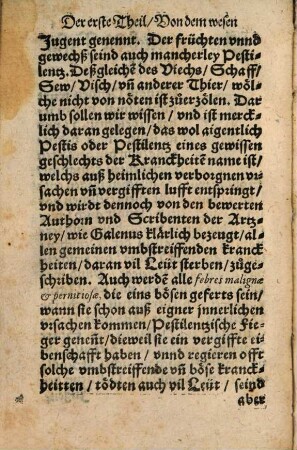 Der erste Theil / Von dem wesen
Jugent genennt. Der früchten vnnd
gewechß seind auch mancherley Pesti-
lentz. Deßgleichē des Viechs / Schaff /
Sew / Visch / vñ anderer Thier / wöl-
che nicht von nöten ist zůerzölen. Dar
umb sollen wir wissen / vnd ist merck-
lich daran gelegen / das wol aigentlich
Pestis oder Pestilentz eines gewissen
geschlechts der Kranckheitē name ist /
welchs auß heimlichen verborgnen vr
sachen vñ vergifften lufft entspringt /
vnd wirdt dennoch von den bewerten
Authorn vnd Scribenten der Artz-
ney / wie Galenus klårlich bezeugt / al-
len gemeinen vmbstreiffenden kranck
heiten / daran vil Leüt sterben / zůge-
schriben. Auch werdē alle febres malignæ
& pernitiosæ, die eins bösen geferts sein /
wann sie schon auß eigner innerlichen
vrsachen kommen / Pestilentzische Fie-
ger geneñt / dieweil sie ein vergiffte ei-
benschafft haben / vnnd regieren offt
solche vmbstreiffende vñ böse kranck-
heitten / tödten auch vil Leüt / seind
aber